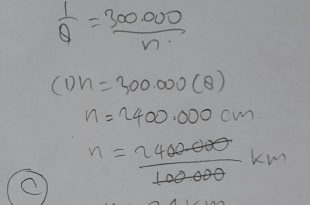 1/8 = 300.000/n.
(1)n = 300.000(8)
n = 2400.000 cm.
n = 2400.000/100.000 km
C
n = 24 km